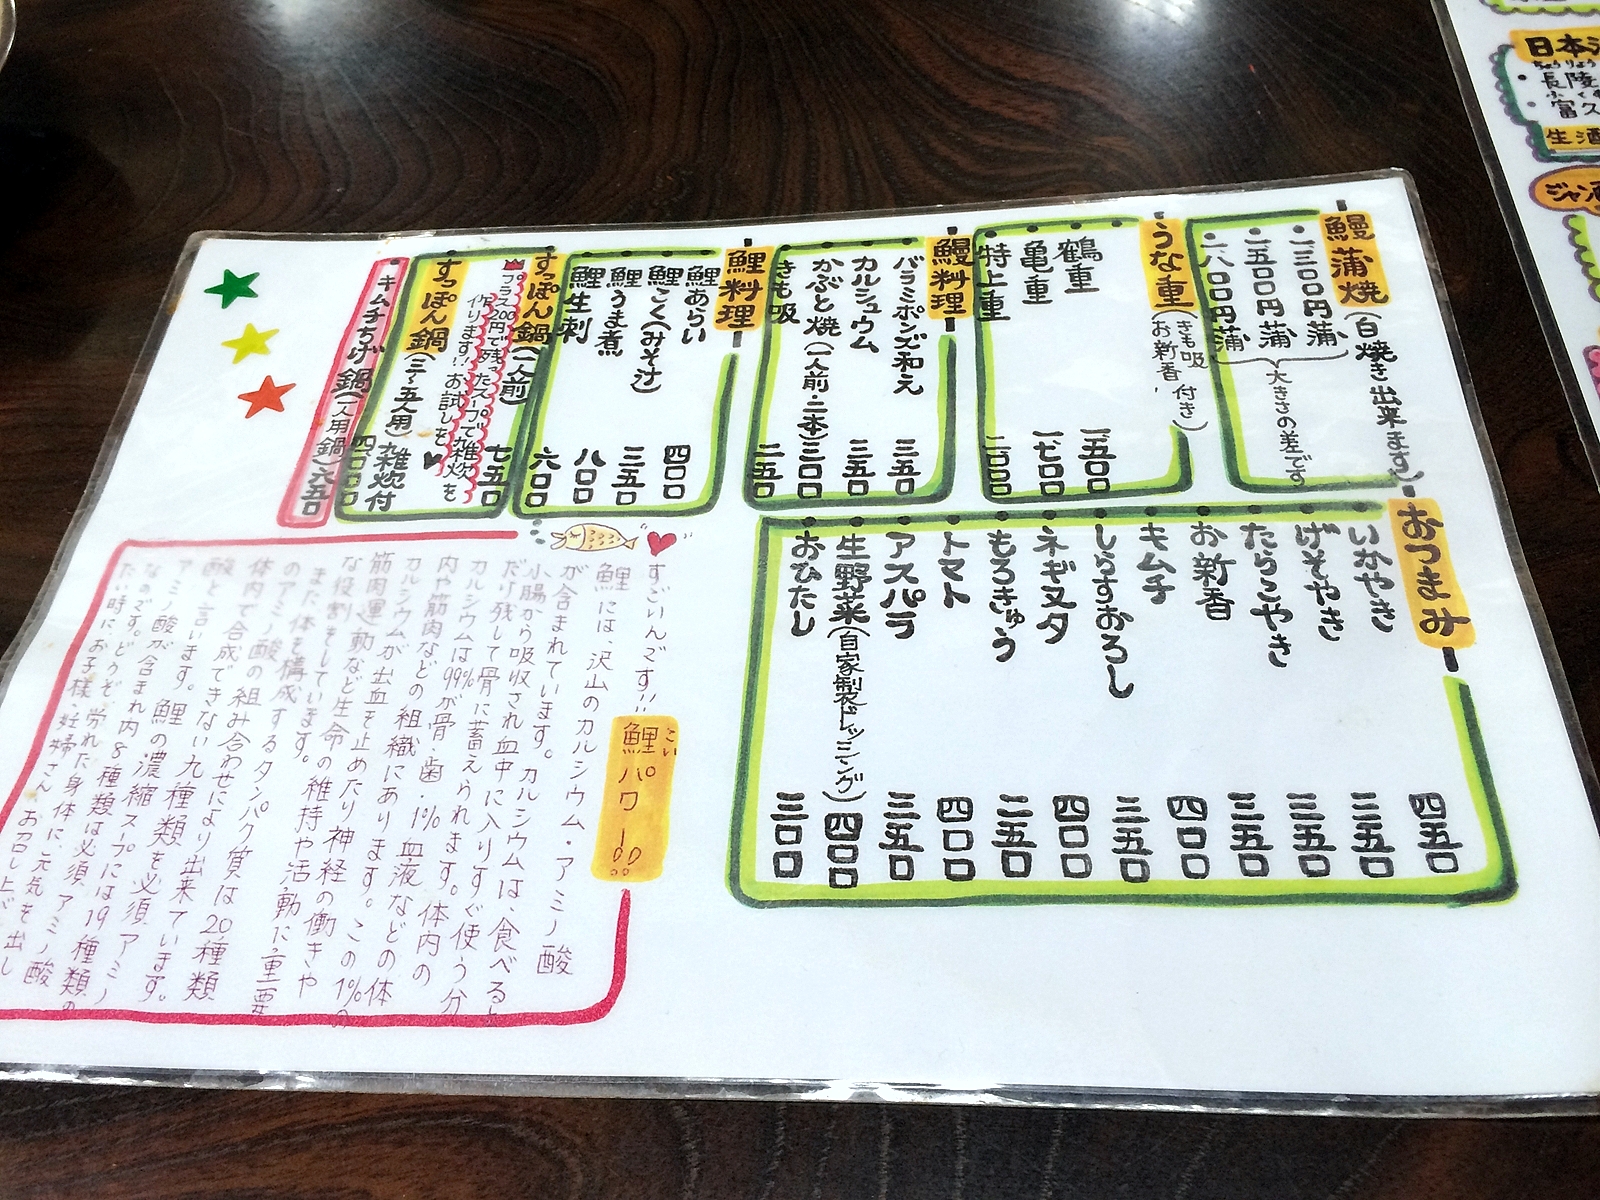 鰻蒲焼(白焼き出来ます)
・一三〇〇円蒲
・一五〇〇円蒲
・一八〇〇円蒲
大きさの差です
うな重(きも吸 お新香、付き)
鶴重 一五〇〇
亀重 一七〇〇
特上重 二〇〇〇
鰻料理
バラミポンズ和え 三五〇
カルシュウム 三五〇
かぶと焼(一人前・二本)三〇〇
きも吸 二五〇
鯉料理
鯉あらい 四〇〇
鯉こく(みそ汁) 三五〇
鯉うま煮 八〇〇
鯉生刺 六〇〇
すっぽん鍋(一人前) 七五〇
プラス200円で残ったスープで雑炊を
作ります!!お試しを
すっぽん鍋(三〜五人用)雑炊付
キムチちげ鍋(一人用鍋)六五〇
おつまみ
いかやき 四五〇
げそやき 三五〇
たらこやき 三五〇
お新香 三五〇
キムチ 四〇〇
しらすおろし 三五〇
ネギヌタ 四〇〇
もろきゅう 二五〇
トマト 四〇〇
アスパラ 三五〇
生野菜(自家製ドレッシング) 四〇〇
おひたし 三〇〇
すごいんです!!
鯉パワー!!
こい
鯉には、沢山のカルシウム・アミノ酸
が含まれています。カルシウムは、食べると
小腸から吸収され血中に入りすぐ使う分
だけ残して骨に蓄えられます。体内の
カルシウムは99%が骨・歯・1%血液などの体
内や筋肉などの組織にあります。この1%の
カルシウムが出血を止めたり神経の働きや
筋肉運動など生命の維持や活動に重要
な役割をしています。
また体を構成するタンパク質は20種類
のアミノ酸の組み合わせにより出来ています。
体内で合成できない九種類を必須アミノ
酸と言います。鯉の濃縮スープには19種類の
アミノ酸が含まれ内8種類は必須アミノ酸
なのです。労れた身体に、元気を出し
たい時にお子様、妊婦さん、お召し上が
日本酒
ちょうりょう
・長陵
・富久
生酒